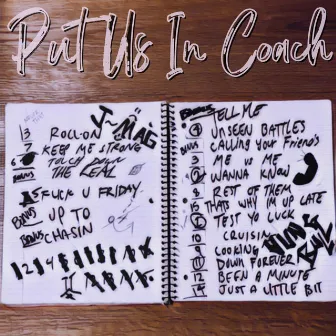 Put Us In Coach
3 ROLL-ON
7 KEEP ME STRONG
6 TOUCH DOWN
BONUS THE REAL
J-MAG
FUCK U FRIDAY
BONUS UP TO
BONUS CHASIN
1 2 3 4
BONUS TELL ME
4 UNSEEN BATTLES
BONUS CALLING YOUR FRIENDS
3 ME VS ME
2 WANNA KNOW
8 REST OF THEM
15 THATS WHY IM UP LATE
5 TEST YO LUCK
10 CRUISIN
COOKING
DOWN FOREVER
12 BEEN A MINUTE
14 JUST A LITTLE BIT